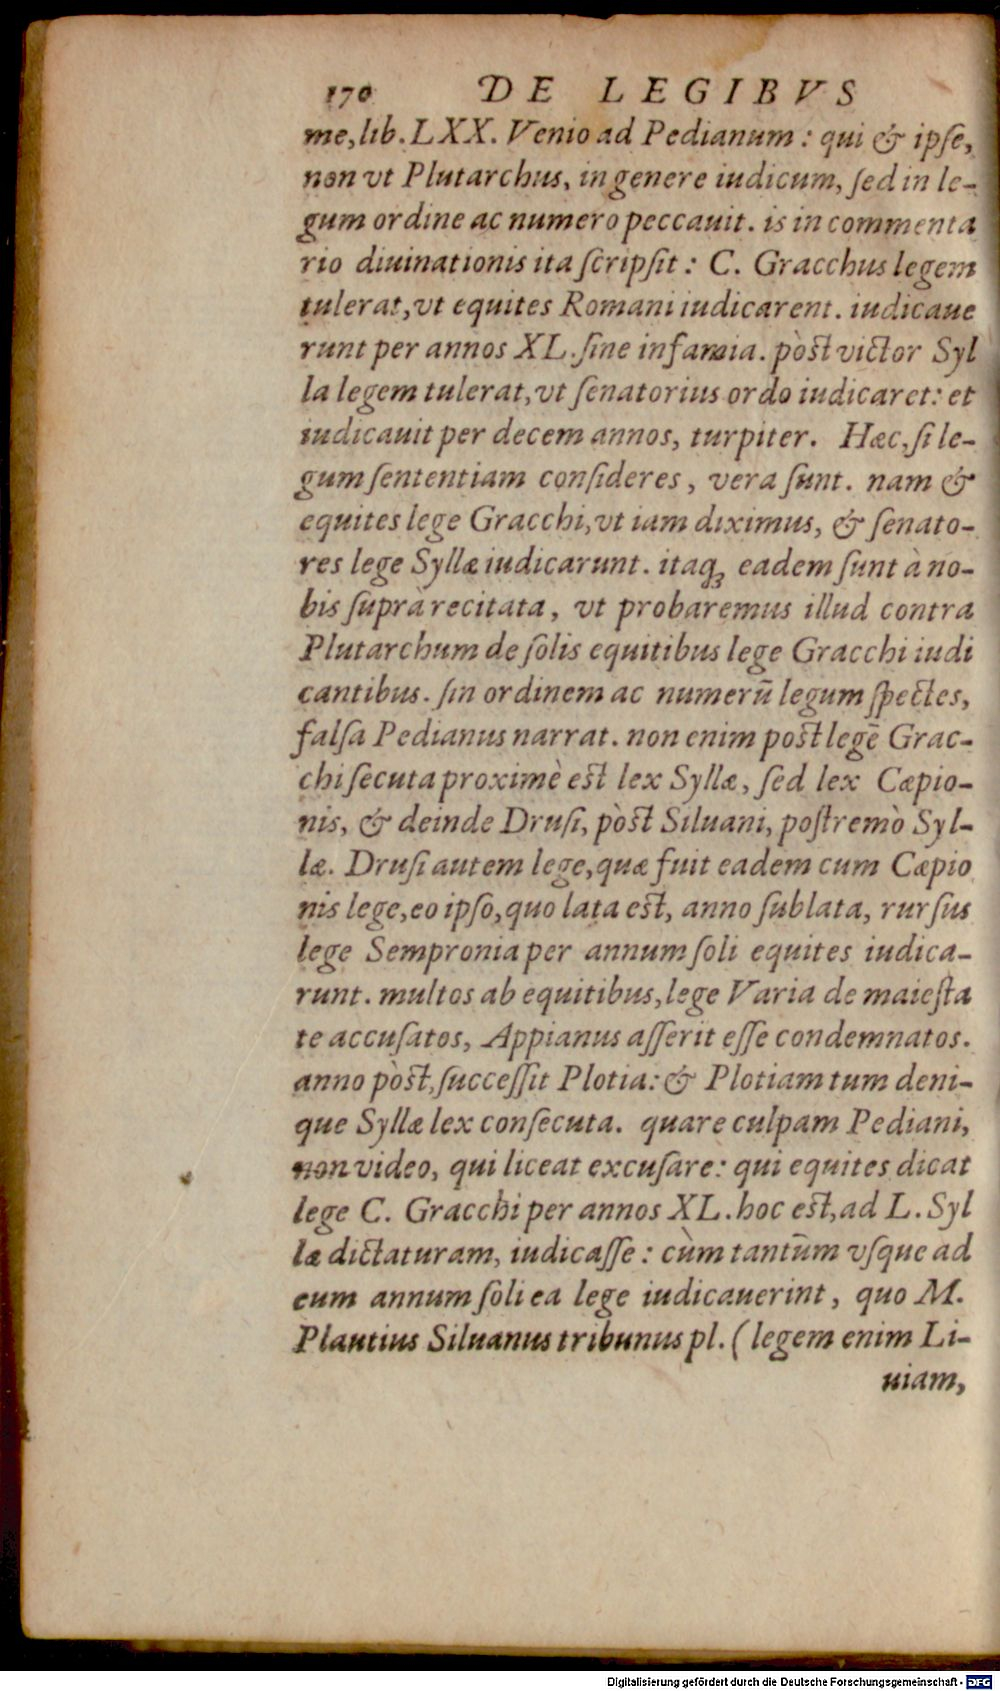 170 DE LEGIBVS
me, lib. LXX. Venio ad Pedianum: qui & ipſe,
non vt Plutarchus, in genere iudicum, ſed in le-
gum ordine ac numero peccauit. is in commenta
rio diuinationis ita ſcripſit: C. Gracchus legem
tulerat, vt equites Romani iudicarent. iudicaue
runt per annos XL. ſine infamia. pòst victor Syl
la legem tulerat, vt ſenatorius ordo iudicaret: et
iudicauit per decem annos, turpiter. Hæc, ſi le-
gum ſententiam conſideres, vera ſunt. nam &
equites lege Gracchi, vt iam diximus, & ſenato-
res lege Syllæ iudicarunt. itaq; eadem ſunt à no-
bis ſuprà recitata, vt probaremus illud contra
Plutarchum de ſolis equitibus lege Gracchi iudi
cantibus. ſin ordinem ac numerū legum ſpectes,
falſa Pedianus narrat. non enim post legē Grac-
chi ſecuta proximè est lex Syllæ, ſed lex Cæpio-
nis, & deinde Druſi, pòst Siluani, poſtremò Syl-
læ. Druſi autem lege, quæ fuit eadem cum Cæpio
nis lege, eo ipſo, quo lata est, anno ſublata, rurſus
lege Sempronia per annum ſoli equites iudica-
runt. multos ab equitibus, lege Varia de maieſta
te accuſatos, Appianus aſſerit eſſe condemnatos.
anno pòst, ſucceſſit Plotia: & Plotiam tum deni-
que Syllæ lex conſecuta. quare culpam Pediani,
non video, qui liceat excuſare: qui equites dicat
lege C. Gracchi per annos XL. hoc est, ad L. Syl
læ dictaturam, iudicaſſe: cùm tantūm vſque ad
eum annum ſoli ea lege iudicauerint, quo M.
Plautius Siluanus tribunus pl. (legem enim Li-
uiam,
Digitalisierung gefördert durch die Deutsche Forschungsgemeinschaft - DFG